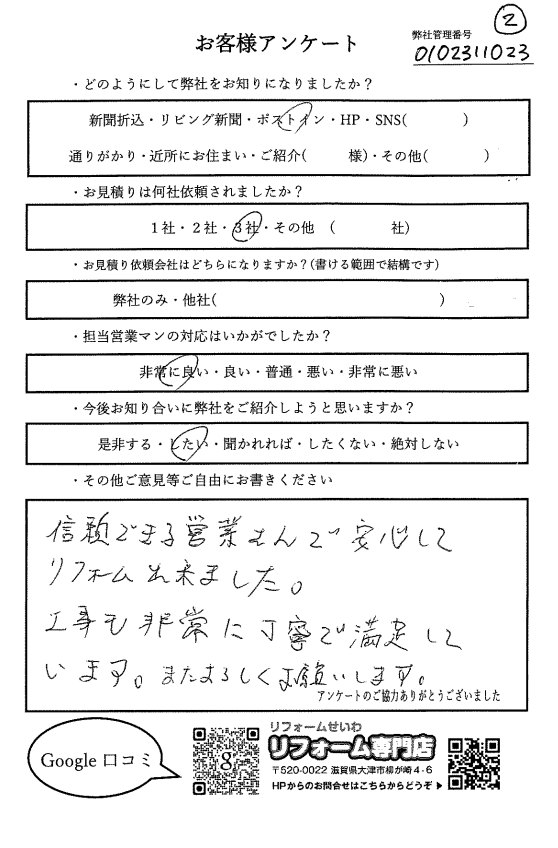 ②
弊社管理番号
0102311023
お客様アンケート
・どのようにして弊社をお知りになりましたか？
新聞折込・リビング新聞・ポストイン・HP・SNS(　　　　)
通りがかり・近所にお住まい・ご紹介(　　　様)・その他(　　　　)
・お見積りは何社依頼されましたか？
1社・2社・3社・その他　(　　　　社)
・お見積り依頼会社はどちらになりますか？(書ける範囲で結構です)
弊社のみ・他社(　　　　　　　　　　　　　　　　)
・担当営業マンの対応はいかがでしたか？
非常に良い・良い・普通・悪い・非常に悪い
・今後お知り合いに弊社をご紹介しようと思いますか？
是非する・したい・聞かれれば・したくない・絶対しない
・その他ご意見等ご自由にお書きください
信頼できる営業さんで安心して
リフォーム出来ました。
工事も非常に丁寧で満足して
います。またよろしくお願いします。
アンケートのご協力ありがとうございました
Google 口コミ
g
リフォームせいわ
リフォーム専門店
〒520-0022 滋賀県大津市柳が崎4-6
HPからのお問合せはこちらからどうぞ▶